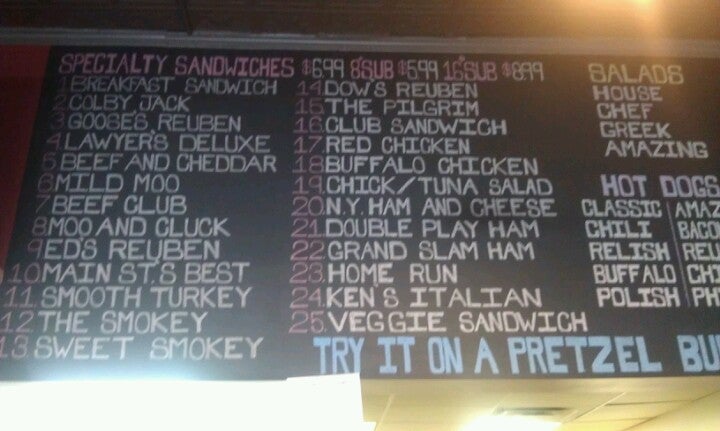 SPECIALTY SANDWICHES $6.99 8"SUB $5.99 16"SUB $8.99
1 BREAKFAST SANDWICH
2. COLBY JACK
3. GOOSE'S REUBEN
4. LAWYER'S DELUXE
5 BEEF AND CHEDDAR
6. MILD MOO
7 BEEF CLUB
8. MOO AND CLUCK
9 ED'S REUBEN
10. MAIN ST.'S BEST
11. SMOOTH TURKEY
12 THE SMOKEY
13 SWEET SMOKEY
14. DOW'S REUBEN
15. THE PILGRIM
16. CLUB SANDWICH
17. RED CHICKEN
18. BUFFALO CHICKEN
19. CHICK/TUNA SALAD
20. N.Y. HAM AND CHEESE
21. DOUBLE PLAY HAM
22. GRAND SLAM HAM
23. HOME RUN
24. KEN'S ITALIAN
25. VEGGIE SANDWICH
TRY IT ON A PRETZEL BU
SALADS
HOUSE
CHEF
GREEK
AMAZING
HOT DOGS
CLASSIC
CHILI
RELISH
BUFFALO
POLISH
AMAZ
BACO
REU
CH
PH